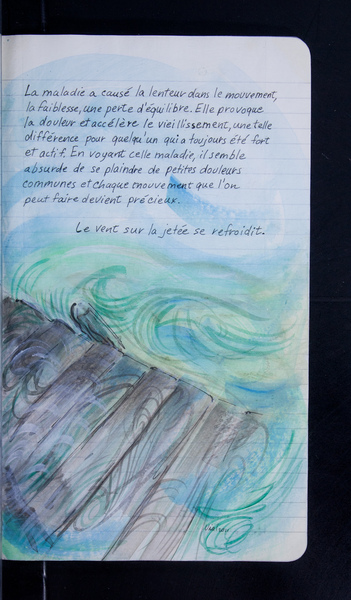 La maladie a causé la lenteur dans le mouvement,
la faiblesse, une perte d'équilibre. Elle provoque
la douleur et accélère le vieillissement, une telle
différence pour quelqu'un qui a toujours été fort
et actif. En voyant celle maladie, il semble
absurde de se plaindre de petites douleurs
communes et chaque mouvement que l'on
peut faire devient précieux.
Le vent sur la jetée se refroidit.